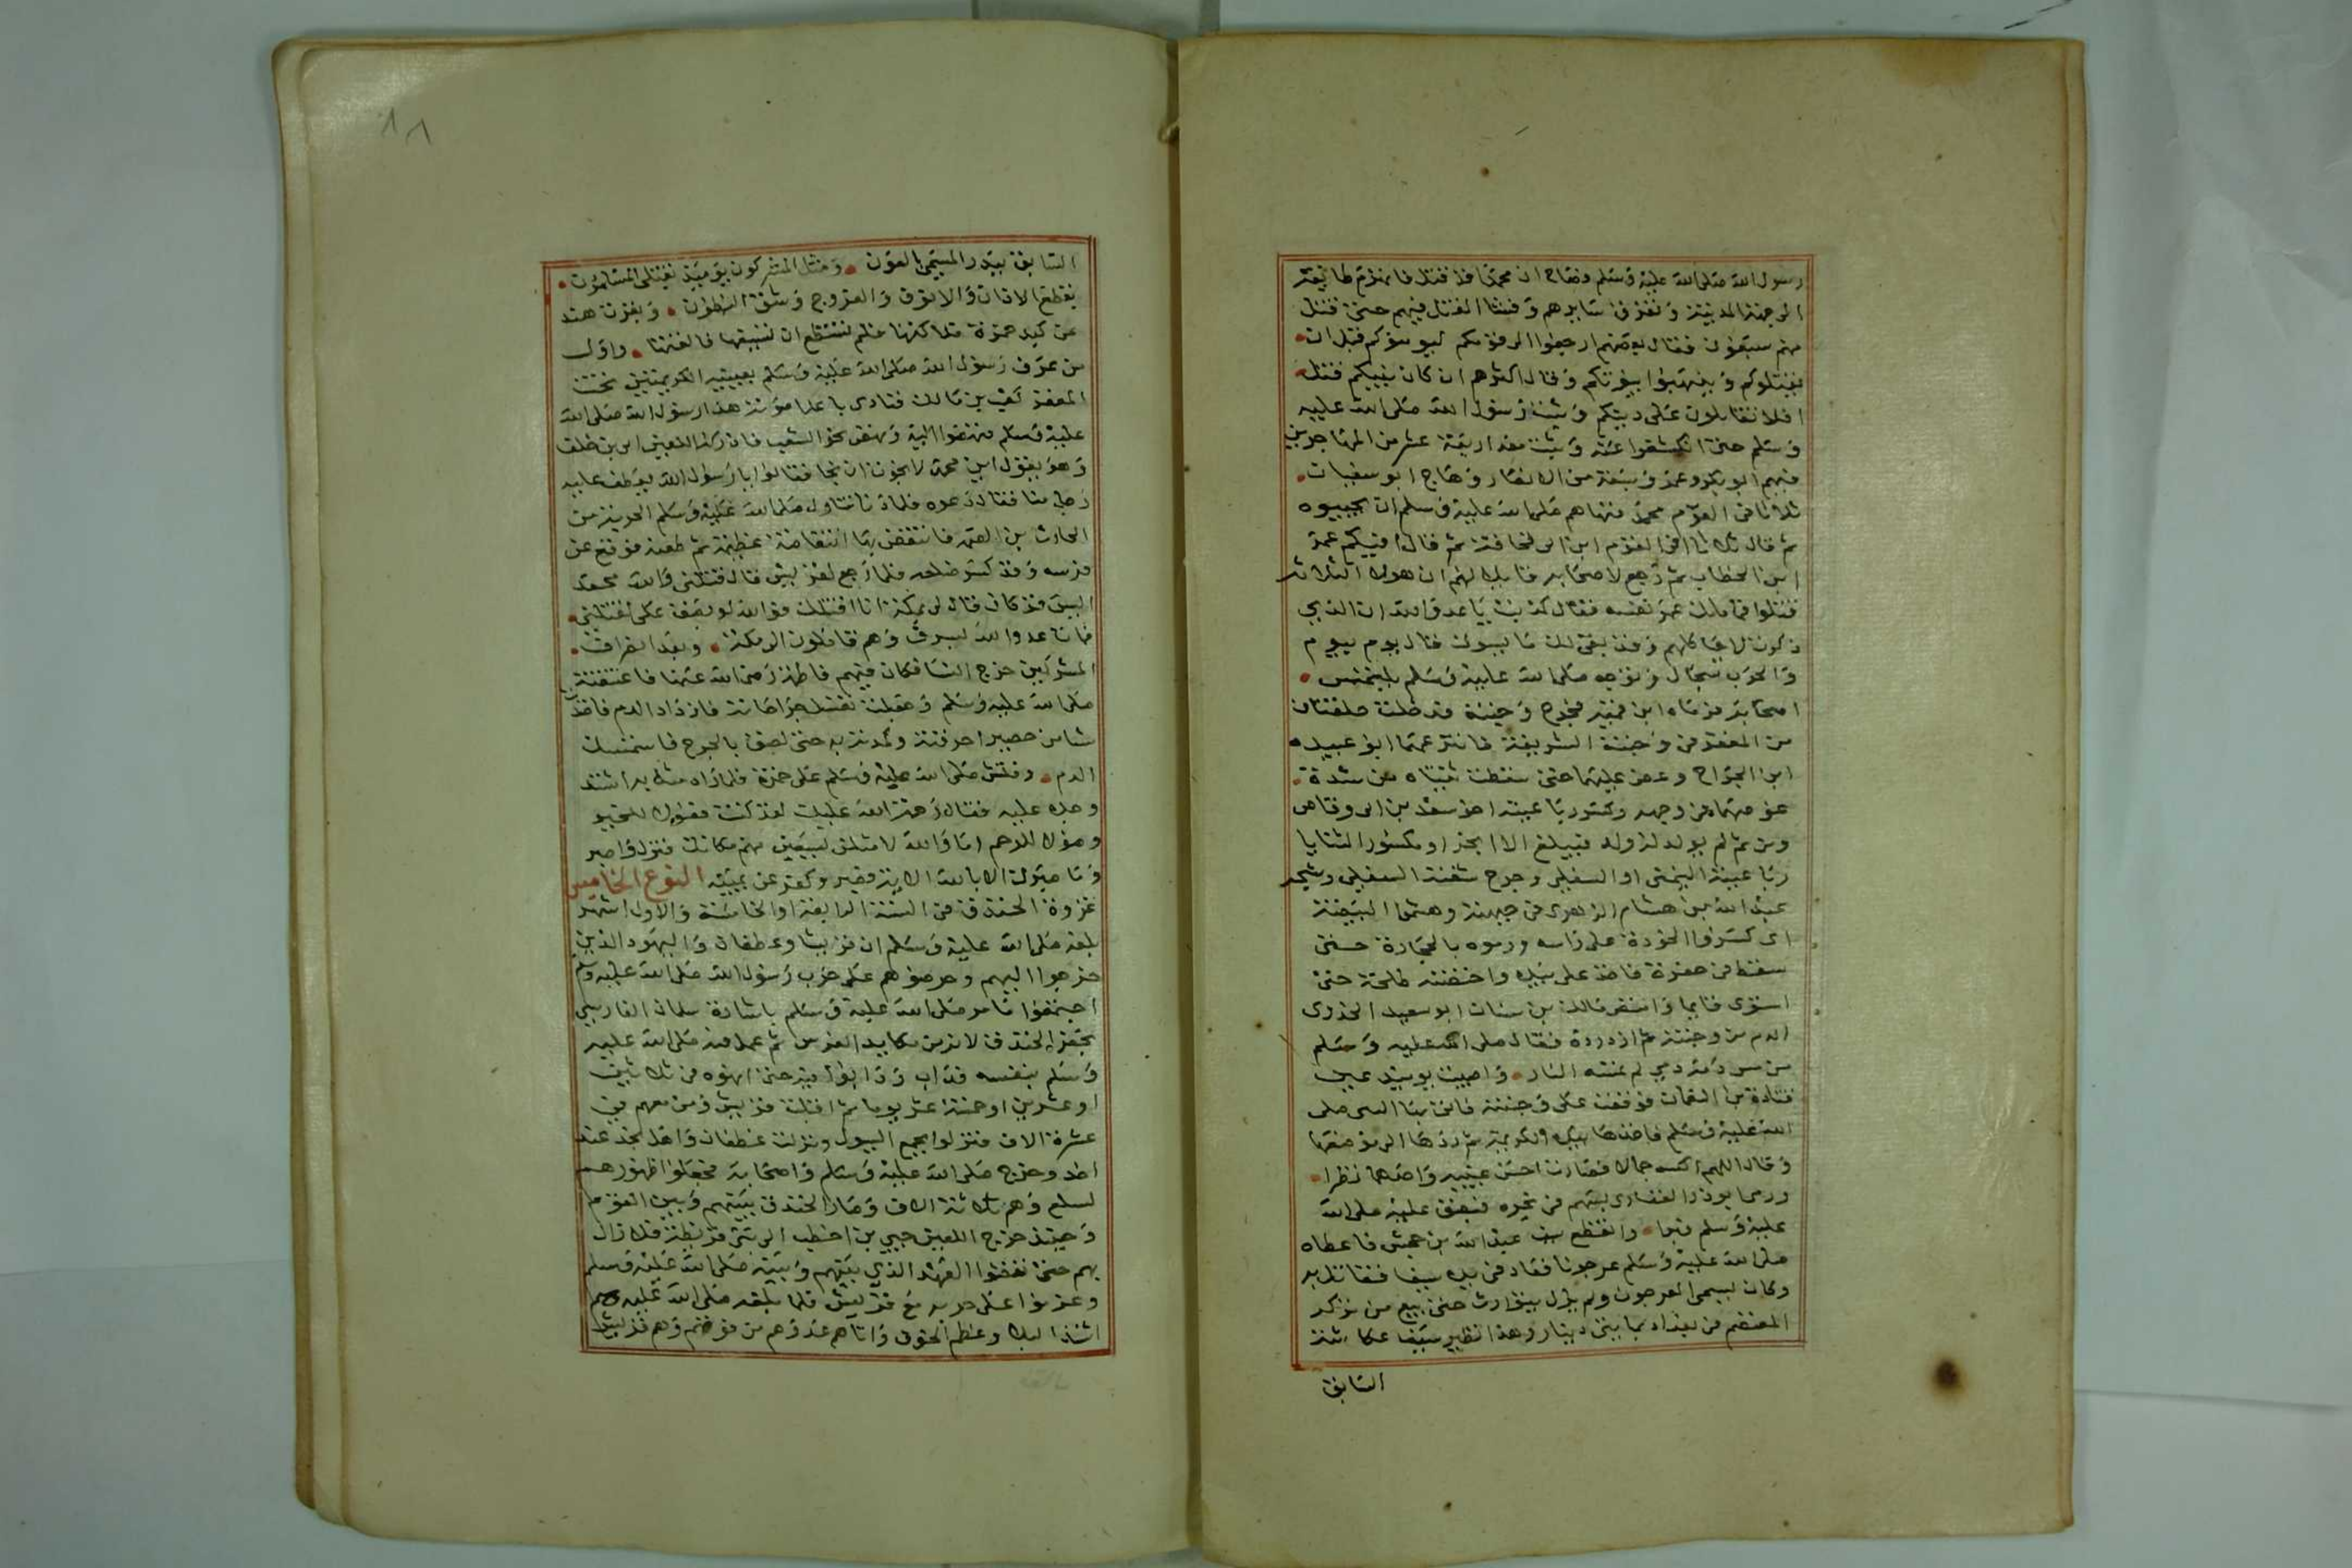 رسول الله صلى الله عليه وسلم وصاح ان محمدا قد قتل فانهزم طايفة
الى جهة المدينة وتفرق سايرهم وفشا القتل فيهم حتى قتل
منهم سبعون فقال بعضهم ارجعوا الى قومكم ليومنوكم قبل ان
يقتلوكم وينهبوا بيوتكم وقال اكثرهم ان كان نبيكم قتل
افلا تقاتلون على دينكم وثبت رسول الله صلى الله عليه
وسلم حتى انكشفوا عنه وثبت معه اربعة عشر من المهاجرين
فيهم ابو بكر وعمر وسبعة من الانصار وصاح ابو سفيان
ثلاثا افى القوم محمد فنهاهم صلى الله عليه وسلم ان يجيبوه
ثم قال ثلاثا افى القوم ابن ابى قحافة ثم قال افيكم عمر
ابن الخطاب ثم رجع لاصحابه قايلا لهم ان هولا الثلاثة
قتلوا فما ملك عمر نفسه فقال كذبت يا عدو الله ان الذي
ذكرت لاحيا كلهم وقد بقى لك ما يسوك قال يوم بيوم
والحرب سجال وتوجه صلى الله عليه وسلم يلتمس
اصحابه فرماه ابن قمية فجرح وجنته فدخلت حلقتان
من المغفر فى وجنته الشريفة فانتزعهما ابو عبيده
ابن الجراح وعض عليهما حتى سقطت ثنيتاه من شدة
غوصهما فى وجهه وكسر رباعيته اخو سعد بن ابى وقاص
ومن ثم لم يولد له ولد فيبلغ الا ابخر او مكسور الثنايا
رباعيته اليمنى او السفلى وجرح شفته السفلى وشجه
عبد الله بن هشام الزهرى فى جبهته وهشموا البيضة
اى كسروا الخودة على راسه ورموه بالحجارة حتى
سقط فى حفرة فاخذ على بيده واحضنه طلحة حتى
استوى قايما وامتص مالك بن سنان ابو سعيد الخدرى
الدم من وجنته ثم ازدرده فقال صلى الله عليه وسلم
من مس دمه دمي لم تمسه النار واصيبت يوميذ عين
قتادة بن النعمان فوقعت على وجنته فاتى بها النبى صلى
الله عليه وسلم فاخذها بيده الكريمة ثم ردها الى موضعها
وقال اللهم اكسه جمالا فصارت احسن عينيه واحدهما نظرا
ورمى ابو ذر الغفارى بسهم فى نحره فبصق عليه صلى الله
عليه وسلم فبرا وانقطع سيف عبد الله بن جحش فاعطاه
صلى الله عليه وسلم عرجونا فعاد فى يده سيفا فقاتل به
وكان يسمى العرجون ولم يزل يتوارث حتى بيع من
المعتصم فى بغداد بمايتى دينار وهذا نظير سيف عكاشة
السابق
١٨
السابق ببدر المسمى بالعون ومثل المشركون يوميذ بقتلى المسلمون
بقطع الاذان والانوف والفروج وشق البطون وبقرت هند
عن كبد حمزة فلاكتها فلم تستطع ان تسيغها فالقتها واول
من عرف رسول الله صلى الله عليه وسلم بعينيه الكريمتين تحت
المغفر كعب بن مالك فنادى باعلا صوته هذا رسول الله صلى الله
عليه وسلم فنهضوا اليه ونهض نحو الشعب فادركه اللعين ابى بن خلف
وهو يقول اين محمد لا نجوت ان نجا فقالوا يا رسول الله يعطف عليه
رجل منا فقال دعوه فلما دنا تناول صلى الله عليه وسلم الحربة من
الحارث بن الصمه فانتفض بها انتفاضة عظيمة ثم طعنه فوقع عن
فرسه وقد كسر ضلعه فلما رجع لقريش قال قتلنى والله محمد
اليس قد كان قال لى بمكة انا اقتلك فوالله لو بصق على لقتلنى
فمات عدو الله بسرف وهم قافلون الى مكة وبعد انصراف
المشركين خرج النسا فكان فيهم فاطمة رضى الله عنها فاعتنقته
صلى الله عليه وسلم وجعلت تغسل جراحاته فازداد الدم فاخذت
شيا من حصير احرقته وكمدته به حتى لصق بالجرح فاستمسك
الدم وفتش صلى الله عليه وسلم على حمزة فلما راه مثل به اشتد
وجده عليه فقال رحمة الله عليك لقد كنت فعولا للخير
وصولا للرحم اما والله لامثلن بسبعين منهم مكانك فنزل واصبر
وما صبرك الا بالله الاية فصبر وكفر عن يمينه النوع الخامس
غزوة الخندق فى السنة الرابعة او الخامسة والاول اشهر
بلغه صلى الله عليه وسلم ان قريشا وغطفان واليهود الذين
خرجوا اليهم وحرضوهم على حرب رسول الله صلى الله عليه وسلم
اجتمعوا فامر صلى الله عليه وسلم باشارة سلمان الفارسي
بحفر الخندق لانه من مكايد الفرس ثم عمل فيه صلى الله عليه
وسلم بنفسه فداب ودابوا فيه حتى انهوه فى ثلاثين
او عشرين او خمسة عشر يوما ثم اقبلت قريش ومن معهم فى
عشرة الاف فنزلوا بجمع السيول ونزلت غطفان واهل نجد عند
احد وخرج صلى الله عليه وسلم واصحابه فجعلوا ظهورهم
لسلع وهم ثلاثة الاف وصار الخندق بينهم وبين القوم
وحينيذ خرج اللعين حيي بن اخطب الى بنى قريظة فلا زال
بهم حتى نقضوا العهد الذي بينهم وبينه صلى الله عليه وسلم
وعزموا على حربه مع قريش فلما بلغه صلى الله عليه وسلم
اشتد البلا وعظم الخوف واتاهم عدوهم من فوقهم وهم قريش